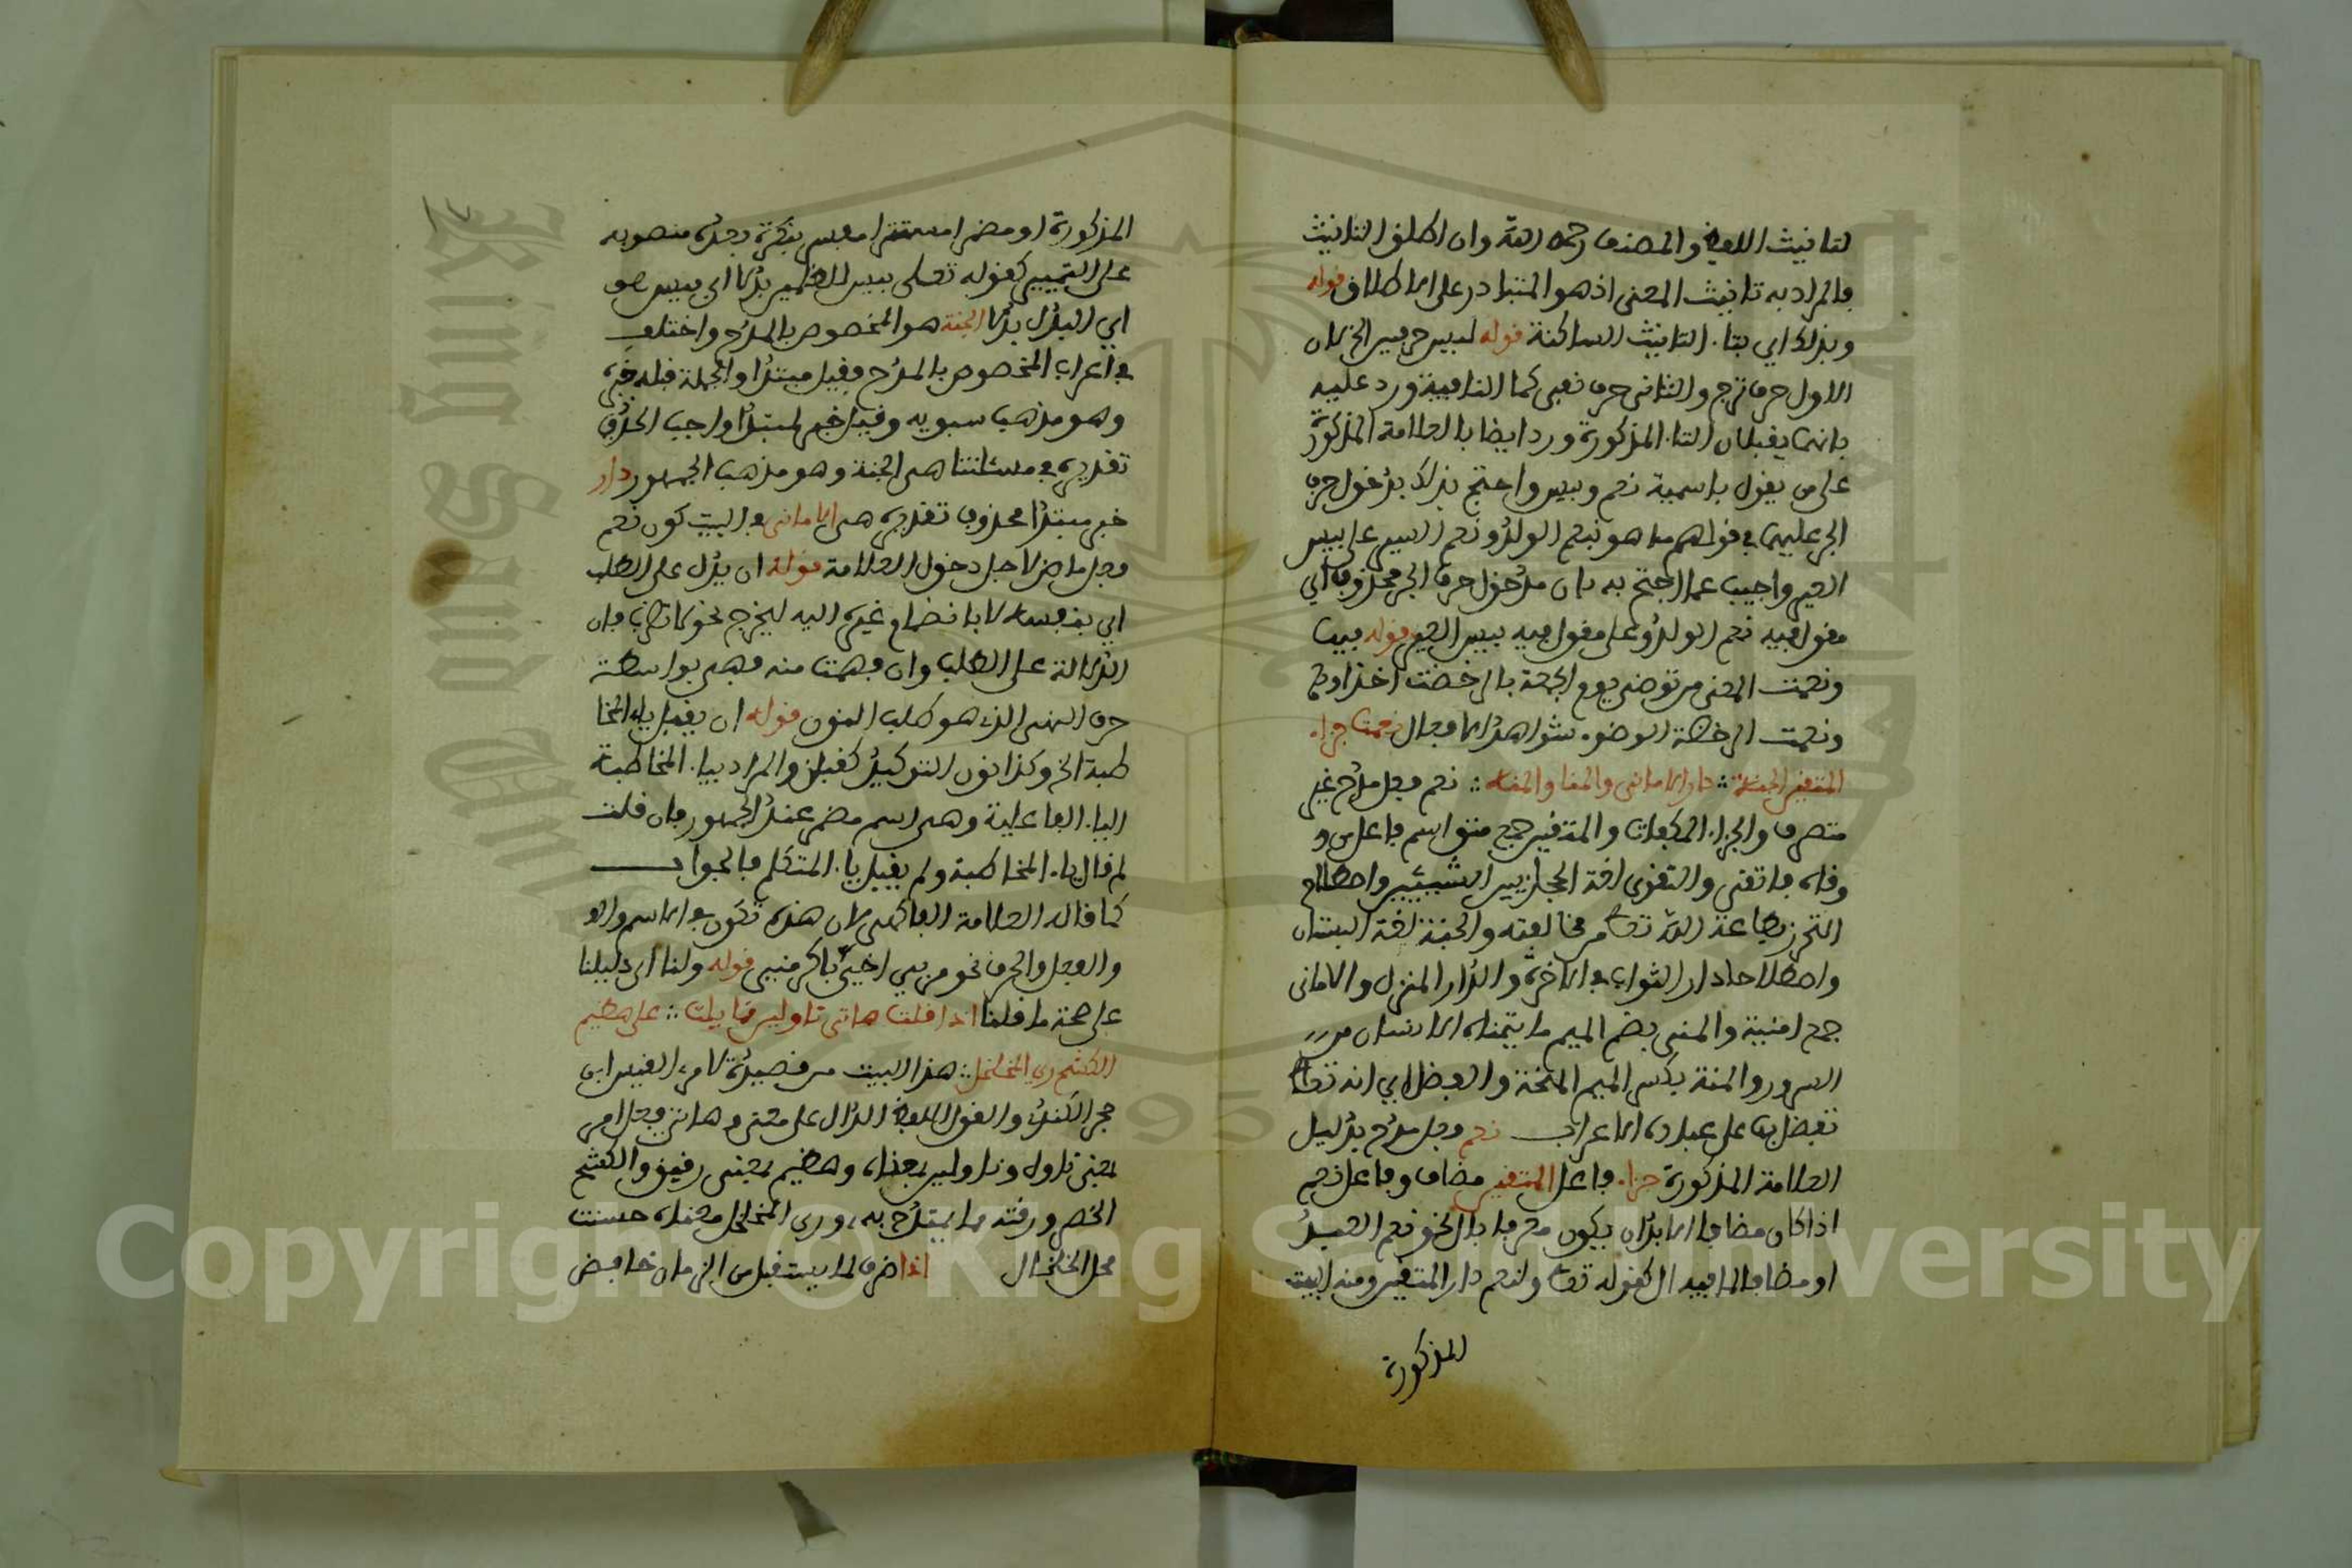 لتانيث اللفظ والمصنف رحمه الله وان اطلق التانيث
فالمراد به تانيث المعنى اذ هو المتبادر على الاطلاق قوله
وبذلك اي بتاء التانيث الساكنة قوله ليس حرفين الخ لان
الاول حرف ترج والثاني حرف نفي كما النافية ورد عليه
بانهما يقبلان التاء المذكورة ورد ايضا بالعلامة المذكورة
على من يقول باسمية نعم وبيس واحتج بذلك بدخول حرف
الجر عليهما في قولهم ما هو بنعم الولد ونعم السير على بيس
العير واجيب عما احتج به بان مدخول حرف الجر محذوف اي
مقول فيه نعم الولد وعلى مقول فيه بيس العير قوله فبها
ونعمت المعنى من توضى يوم الجمعة بالرخصة اخذ
ونعمت الرخصة الوضوء شواهد الافعال نعمت جزاء
المتقين الجنة ∴ دار الاماني والمنا والمنه ∴ نعم فعل مدح غير
متصرف والجزاء المكافات والمتقين جمع متق اسم فاعل من و
وقاه فاتقى والتقوى لغة الحجز بين الشيئين واصطلاح
التحرز بطاعة الله تعا من مخالفته والجنة لغة البستان
واصطلاحا دار الثواب في الاخرة والدار المنزل والاماني
جمع امنية والمنى بضم الميم ما يتمناه الانسان من
السرور والمنة بكسر الميم المنحة والفضل اي انه تعا
تفضل بها على عباده الاعراب نعم فعل مدح بدليل
العلامة المذكورة جزاء فاعل المتقين مضاف وفاعل نعم
اذا كان مضافا لا بد ان يكون معرفا بال نحو نعم العبد
او مضافا لما فيه ال كقوله تعا ولنعم دار المتقين ومنه البيت
المذكورة
المذكورة او مضمرا مستترا مفسر بنكرة بعده منصوبه
على التمييز كقوله تعلى بيس للظلمين بدلا اي بيس هو
اي البدل بدلا الجنة هو المخصوص بالمدح واختلف
في اعراب المخصوص بالمدح فقيل مبتدا والجملة قبله خبره
وهو مذهب سبويه وقيل خبر لمبتدا واجب الحذف
تقديره في مسئلتنا هي الجنة وهو مذهب الجمهور دار
خبر مبتدا محذوف تقديره هي الاماني والبيت كون نعم
فعل ماض لاجل دخول العلامة قوله ان يدل على الطلب
اي بنفسه لا بانضمام غيره اليه ليخرج نحو لا تضرب فان
الدلالة على الطلب وان فهمت منه فهي بواسطة
حرف النهي الذي هو طلب الترك قوله ان يقبل ياء المخا
طبة الخ وكذا نون التوكيد كقبلن والمراد بياء المخاطبة
الياء الفاعلية وهي اسم مضمر عند الجمهور فان قلت
لم قال ياء المخاطبة ولم يقل ياء المتكلم فالجواب
كما قاله العلامة الفاكهي لان هذه تكون في الاسم
والفعل والحرف نحو مر بي اخي فاكرمني قوله ولنا اي دليلنا
على صحة ما قلنا اذا قلت هاتي ناوليني تمايلت ∴ علي هضيم
الكشح ري المخلخل ∴ هذا البيت من قصيدة لامرء القيس ابن
حجر الكندي والقول اللفظ الدال على معنى وهاتي فعل امر
بمعنى ناوله وناوليني بمعناه وهضيم بمعنى رقيق والكشح
الخصر ورقته مما يمتدح به وري المخلخل معناه حسنت
محل الخلخال اذا ظرف لما يستقبل من الزمان خافض